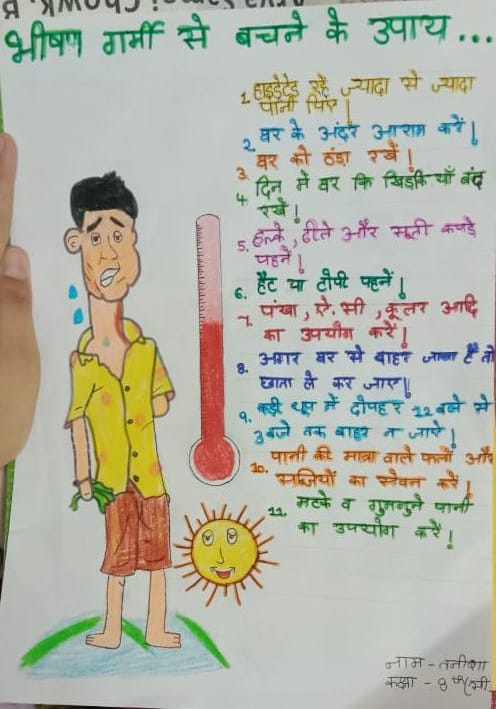 भीषण गर्मी से बचने के उपाय...
1. हाइड्रेटेड रहें ज्यादा से ज्यादा
पानी पिएं|
2. घर के अंदर आराम करें|
3. घर को ठंडा रखें!
4. दिन में घर कि खिड़कियाँ बंद
रखें!
5. हल्के, ढीले और सूती कपड़े
पहनें|
6. हैट या टोपी पहनें|
7. पंखा, ऐ.सी, कूलर आदि
का उपयोग करें|
8. अगर घर से बाहर जाना है तो
छाता ले कर जाए!
9. कड़ी धूप में दोपहर 12 बजे से
3 बजे तक बाहर न जाऐ|
10. पानी की मात्रा वाले फलों और
सब्जियों का सेवन करें|
11. मटके व गुनगुने पानी
का उपयोग करें!
नाम - तनीशा
कक्षा - 8th सी